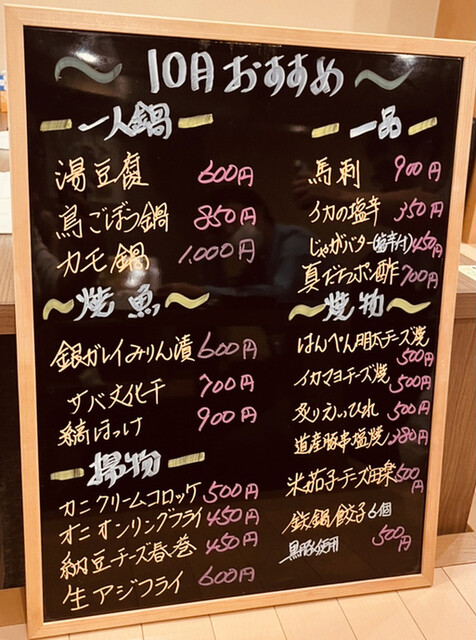 10月おすすめ
一人鍋
湯豆腐 600円
鳥ごぼう鍋 850円
カモ鍋 1,000円
焼魚
銀ガレイみりん漬 600円
サバ文化干 700円
縞ほっけ 900円
揚物
カニクリームコロッケ 500円
オニオンリングフライ 450円
納豆チーズ春巻 450円
生アジフライ 600円
一品
馬刺 900円
イカの塩辛 350円
じゃがバター(塩辛付) 450円
真だちポン酢 700円
焼物
はんぺん明太チーズ焼
500円
イカマヨチーズ焼 500円
炙りえいひれ 500円
道産豚串塩焼 380円
米茄子チーズ田楽 500円
鉄鍋餃子6個
黒豚使用 500円